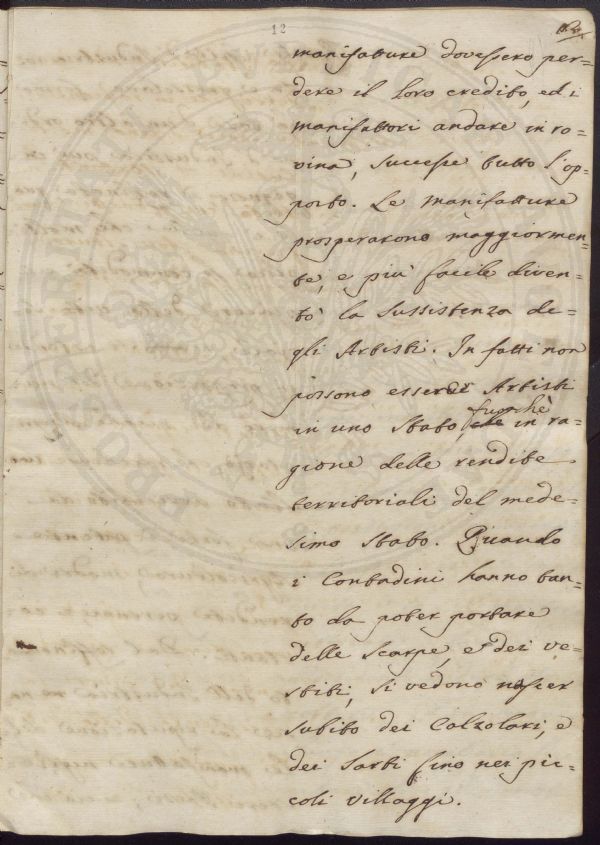 12
manifatture dovessero per=
dere il loro credito, ed i
manifattori andare in ro=
vina, successe tutto l'op=
posto. Le manifatture
prosperarono maggiormen=
te, e più facile diven=
tò la sussistenza de=
gli Artisti. In fatti non
possono esserci Artisti
in uno Stato, fuorchè in ra=
gione delle rendite
territoriali del mede=
simo Stato. Quando
i Contadini hanno tan=
to da poter portare
delle Scarpe, e dei ve=
stiti, si vedono nascer
subito dei Calzolari, e
dei Sarti fino nei pic=
coli villaggi.